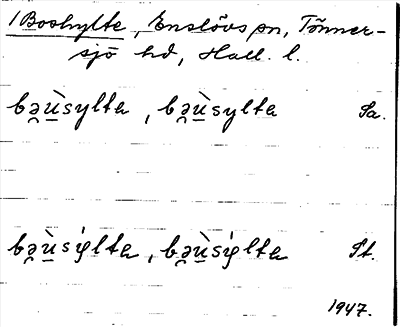 1 Boshylte, Enslövs sn, Tönner-
sjö hd, Hall. l.
bə̯u̠̇̀sylta, bə̯u̠̇̀sylta Sa.
bə̯u̠̇̀sylta, bə̯u̠̇̀sylta St.
1947.